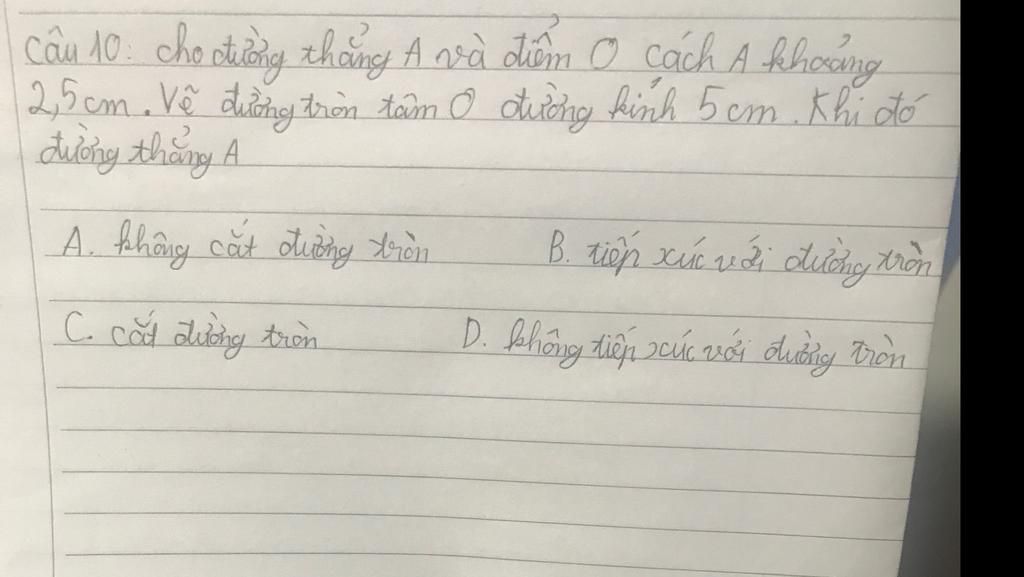 Câu 10: cho đường thẳng A và điểm O cách A khoảng
2,5cm. Vẽ đường tròn tâm O đường kính 5cm. Khi đó
đường thẳng A
A. không cắt đường tròn B. tiếp xúc với đường tròn
C. cắt đường tròn D. không tiếp xúc với đường tròn